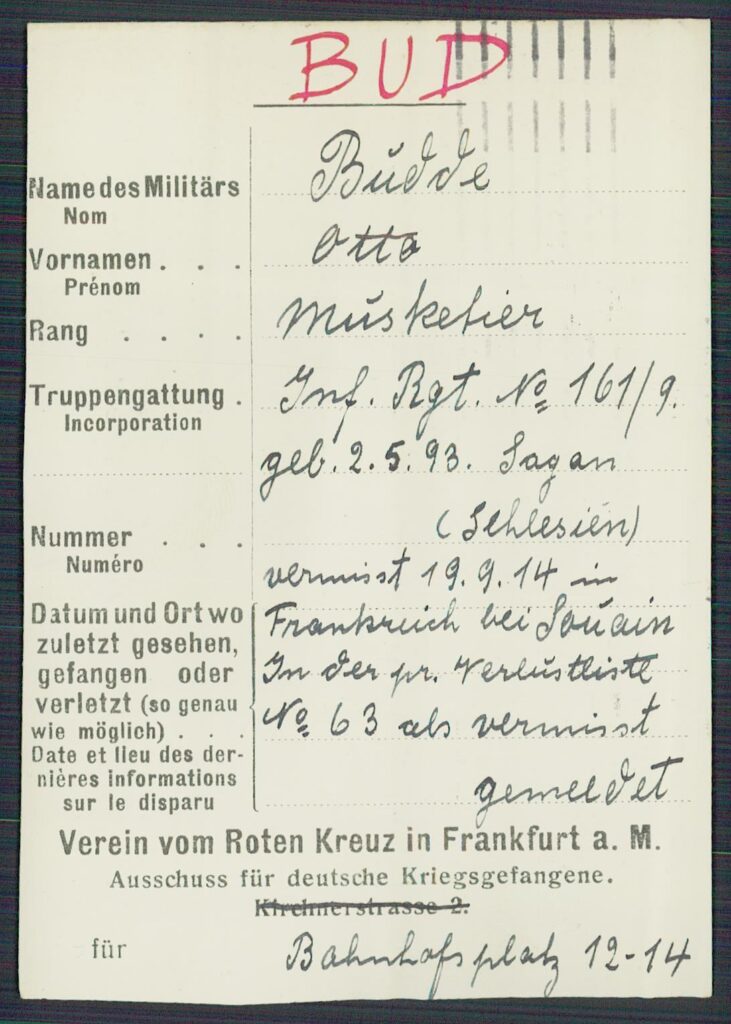 BUD
Name des Militärs Budde
Nom
Vornamen . . . Otto
Prénom
Rang . . . . Musketier
Truppengattung . Inf. Rgt. No 161/9.
Incorporation
geb. 2.5.93. Sagan
(Schlesien)
Nummer . . .
Numéro
vermisst 19.9.14 in
Datum und Ort wo Frankreich bei Souain
zuletzt gesehen,
gefangen oder In der pr. Verlustliste
verletzt (so genau No 63 als vermisst
wie möglich) . . .
Date et lieu des der-
nières informations gemeldet
sur le disparu
Verein vom Roten Kreuz in Frankfurt a. M.
Ausschuss für deutsche Kriegsgefangene.
Kirchnerstrasse 2.
für Bahnhofsplatz 12-14